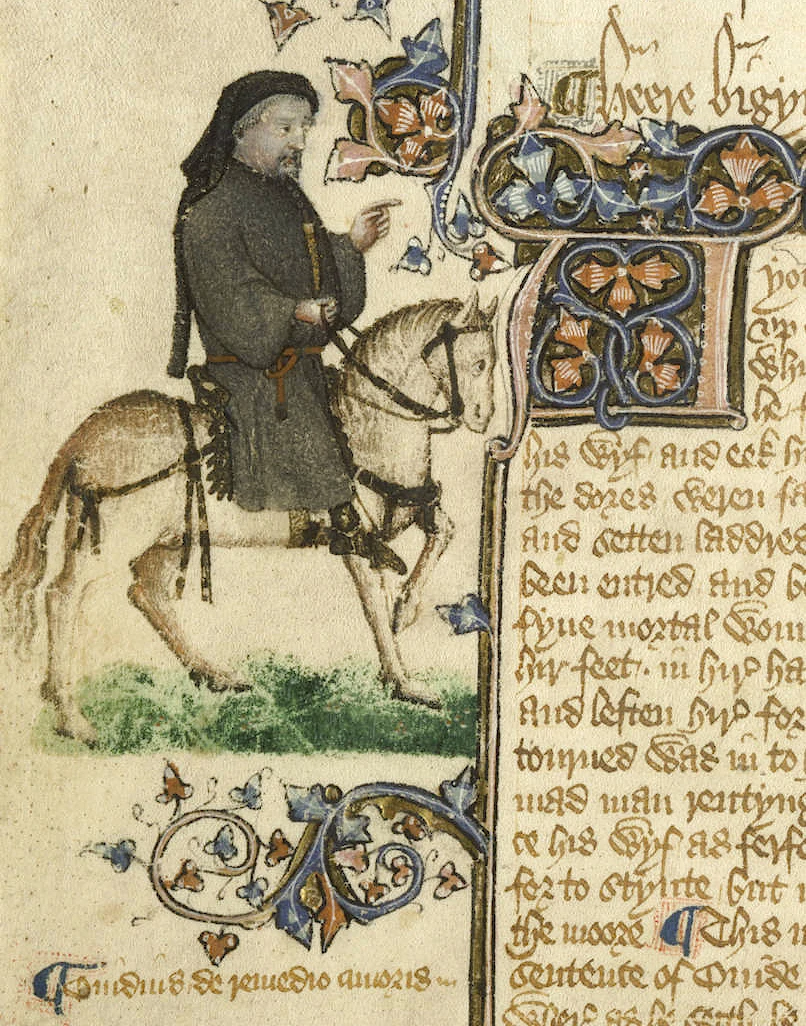 Heere bigyn
yon
vp
whi
he
his wyf and eek h
the dores weren fa
and setten laddres
been entred and b
fyue mortal woun
hir feet in hir ha
and leften hir for
tourned was in to
mad man rentyng
te his wyf as ferfo
for to stynte but
the moore ¶ This
sentence of Ouide
wher as he seith
¶ Ouidius de remedio amoris